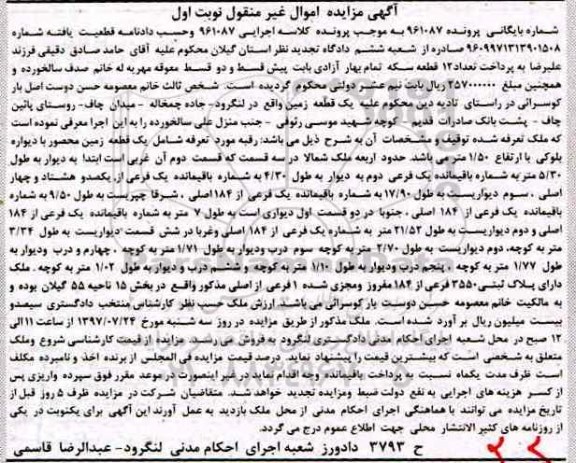 آگهی مزایده اموال غیر منقول نوبت اول
شماره بایگانی پرونده ۹۶۱۰۸۷ به موجب پرونده کلاسه اجرایی ۹۶۱۰۸۷ وحسب دادنامه قطعیت یافته شماره
۹۶۰۹۹۷۱۳۱۳۹۰۱۵۰۸ صادره از شعبه ششم دادگاه تجدید نظر استان گیلان محکوم علیه آقای حامد صادق دقیقی فرزند
علیرضا به پرداخت تعداد ۱۲ قطعه سکه تمام بهار آزادی بابت پیش قسط و دو قسط معوقه مهریه له خانم صدف سالخورده و
همچنین مبلغ ۲۵۷۰۰۰۰۰۰ ریال بابت نیم عشر دولتی محکوم گردیده است. شخص ثالث خانم معصومه حسن دوست اصل بار
کوسرائی در راستای تادیه دین محکوم علیه یک قطعه زمین واقع در لنگرود- جاده چمخاله - میدان چاف- روستای پائین
چاف - پشت بانک صادرات قدیم- کوچه شهید موسی رئوفی - جنب منزل علی سالخورده را به این اجرا معرفی نموده است
که ملک تعرفه شده توقیف و مشخصات آن به شرح ذیل می باشد: رقبه مورد تعرفه شامل یک قطعه زمین محصور با دیواره
بلوکی با ارتفاع ۱/۵۰ متر می باشد. حدود اربعه ملک شمالا در سه قسمت که قسمت دوم آن غربی است ابتدا به دیوار به طول
۵/۳۰ متر به شماره باقیمانده یک فرعی دوم به دیوار به طول ۴/۳۰ به شماره باقیمانده یک فرعی از یکصدو هشتاد و چهار
اصلی ، سوم دیواریست به طول ۱۷/۹۰ به شماره باقیمانده یک فرعی از ۱۸۴ اصلی ، شرقا چپریست به طول ۹/۵۰ به شماره
باقیمانده یک فرعی از ۱۸۴ اصلی ، جنوبا در دو قسمت اول دیواری است به طول ۷ متر به شماره باقیمانده یک فرعی از ۱۸۴
اصلی و دوم دیواریست به طول ۲۱/۵۲ متر به شماره یک فرعی از ۱۸۴ اصلی وغربا در شش قسمت دیواریست به طول ۳/۳۴
متر به کوچه، دوم دیواریست به طول ۲/۷۰ متر به کوچه سوم درب ودیوار به طول ۱/۷۱ متر به کوچه ، چهارم و درب ودیوار به
طول ۱/۷۷ متر به کوچه ، پنجم درب ودیوار به طول ۱/۱۰ متر به کوچه و ششم درب و دیوار به طول ۱/۰۲ متر به کوچه . ملک
دارای پلاک ثبتی ۳۵۵۰ فرعی از ۱۸۴ مفروز ومجزی شده ۱ فرعی از اصلی مذکور واقع در بخش ۱۵ ناحیه ۵۵ گیلان بوده و
به مالکیت خانم معصومه حسین دوست یار کوسرائی می باشد. ارزش ملک حسب نظر کارشناس منتخب دادگستری سیصدو
بیست میلیون ریال بر آورد شده است. ملک مذکور از طریق مزایده در روز سه شنبه مورخ ۱۳۹۷/۰۷/۲۴ از ساعت ۱۱ الی
۱۲ صبح در محل شعبه اجرای احکام مدنی دادگستری لنگرود به فروش می رسد. مزایده از قیمت کارشناسی شروع وملک
متعلق به شخصی است که بیشترین قیمت را پیشنهاد نماید. ده درصد قیمت مزایده فی المجلس از برنده اخذ و نامبرده مکلف
است ظرف مدت یکماه نسبت به پرداخت باقیمانده وجه اقدام نماید در غیر اینصورت در موعد مقرر فوق سپرده واریزی پس
از کسر هزینه های اجرایی به نفع دولت ضبط ومزایده تجدید خواهد شد. متقاضیان شرکت در مزایده ظرف ۵ روز قبل از
تاریخ مزایده می توانند با هماهنگی اجرای احکام مدنی از محل ملک بازدید به عمل آورند این آگهی برای یکنوبت در یکی
از روزنامه های کثیر الانتشار محلی جهت اطلاع عموم درج می گردد.
ح ۳۷۹۳ دادورز شعبه اجرای احکام مدنی لنگرود- عبدالرضا قاسمی